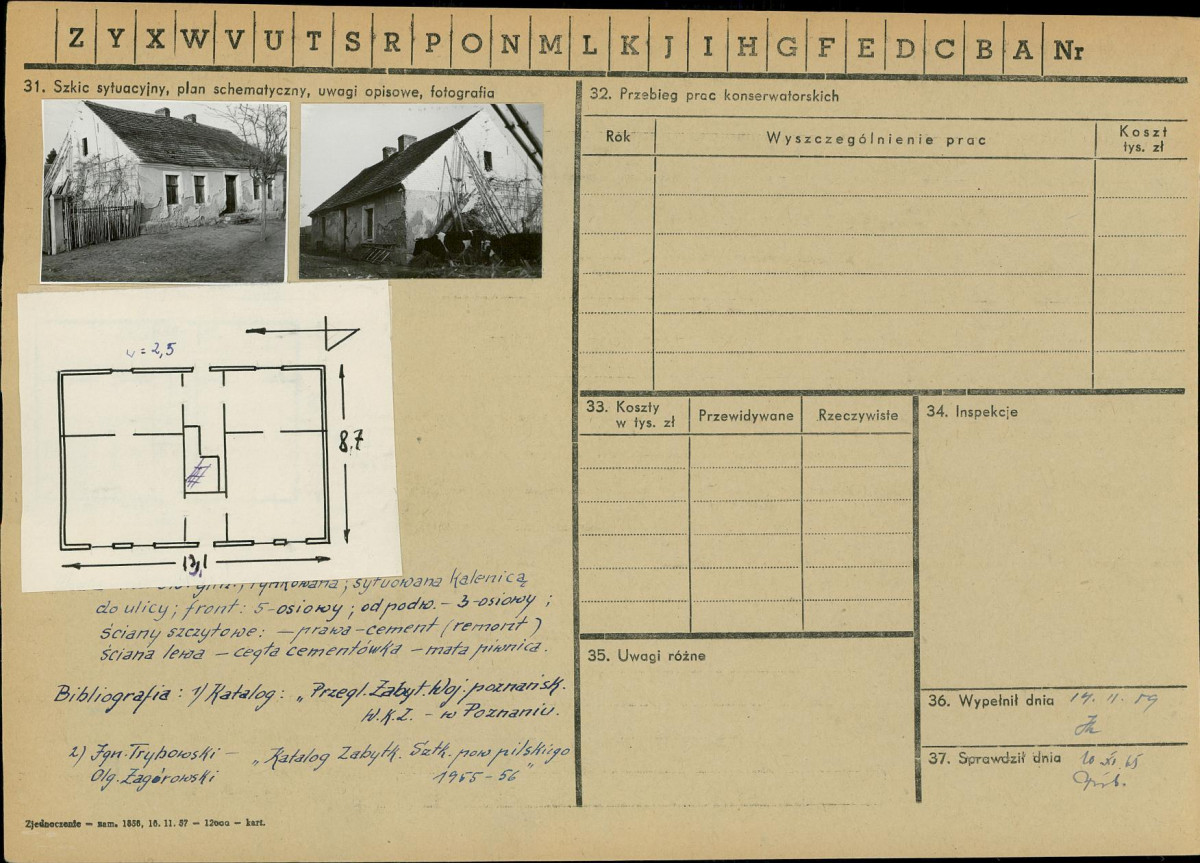 Z Y X W V U T S R P O N M L K J I H G F E D C B A Nr
31. Szkic sytuacyjny, plan schematyczny, uwagi opisowe, fotografia
= 2,5
8,7
13,1
tynkowana; sytuowana kalenicą
do ulicy; front: 5-osiowy; od podw. - 3-osiowy;
ściany szczytowe: - prawa - cement (remont)
ściana lewa - cegła cementówka - mała piwnica.
Bibliografia: 1) Katalog: „Przegl. Zabyt. Woj. poznańsk.
W.K.Z. - w Poznaniu.
2) Ign. Trybowski - „Katalog Zabytk. Sztk. pow pilskiego
Olg. Zagórowski 1955-56"
Zjednoczenie — zam. 1836, 16. 11. 57 — 12000 — kart.
32. Przebieg prac konserwatorskich
Rok Wyszczególnienie prac Koszt
tys. zł
33. Koszty
w tys. zł Przewidywane Rzeczywiste
34. Inspekcje
35. Uwagi różne
36. Wypełnił dnia 14. II. 59
37. Sprawdził dnia 10 XI 65